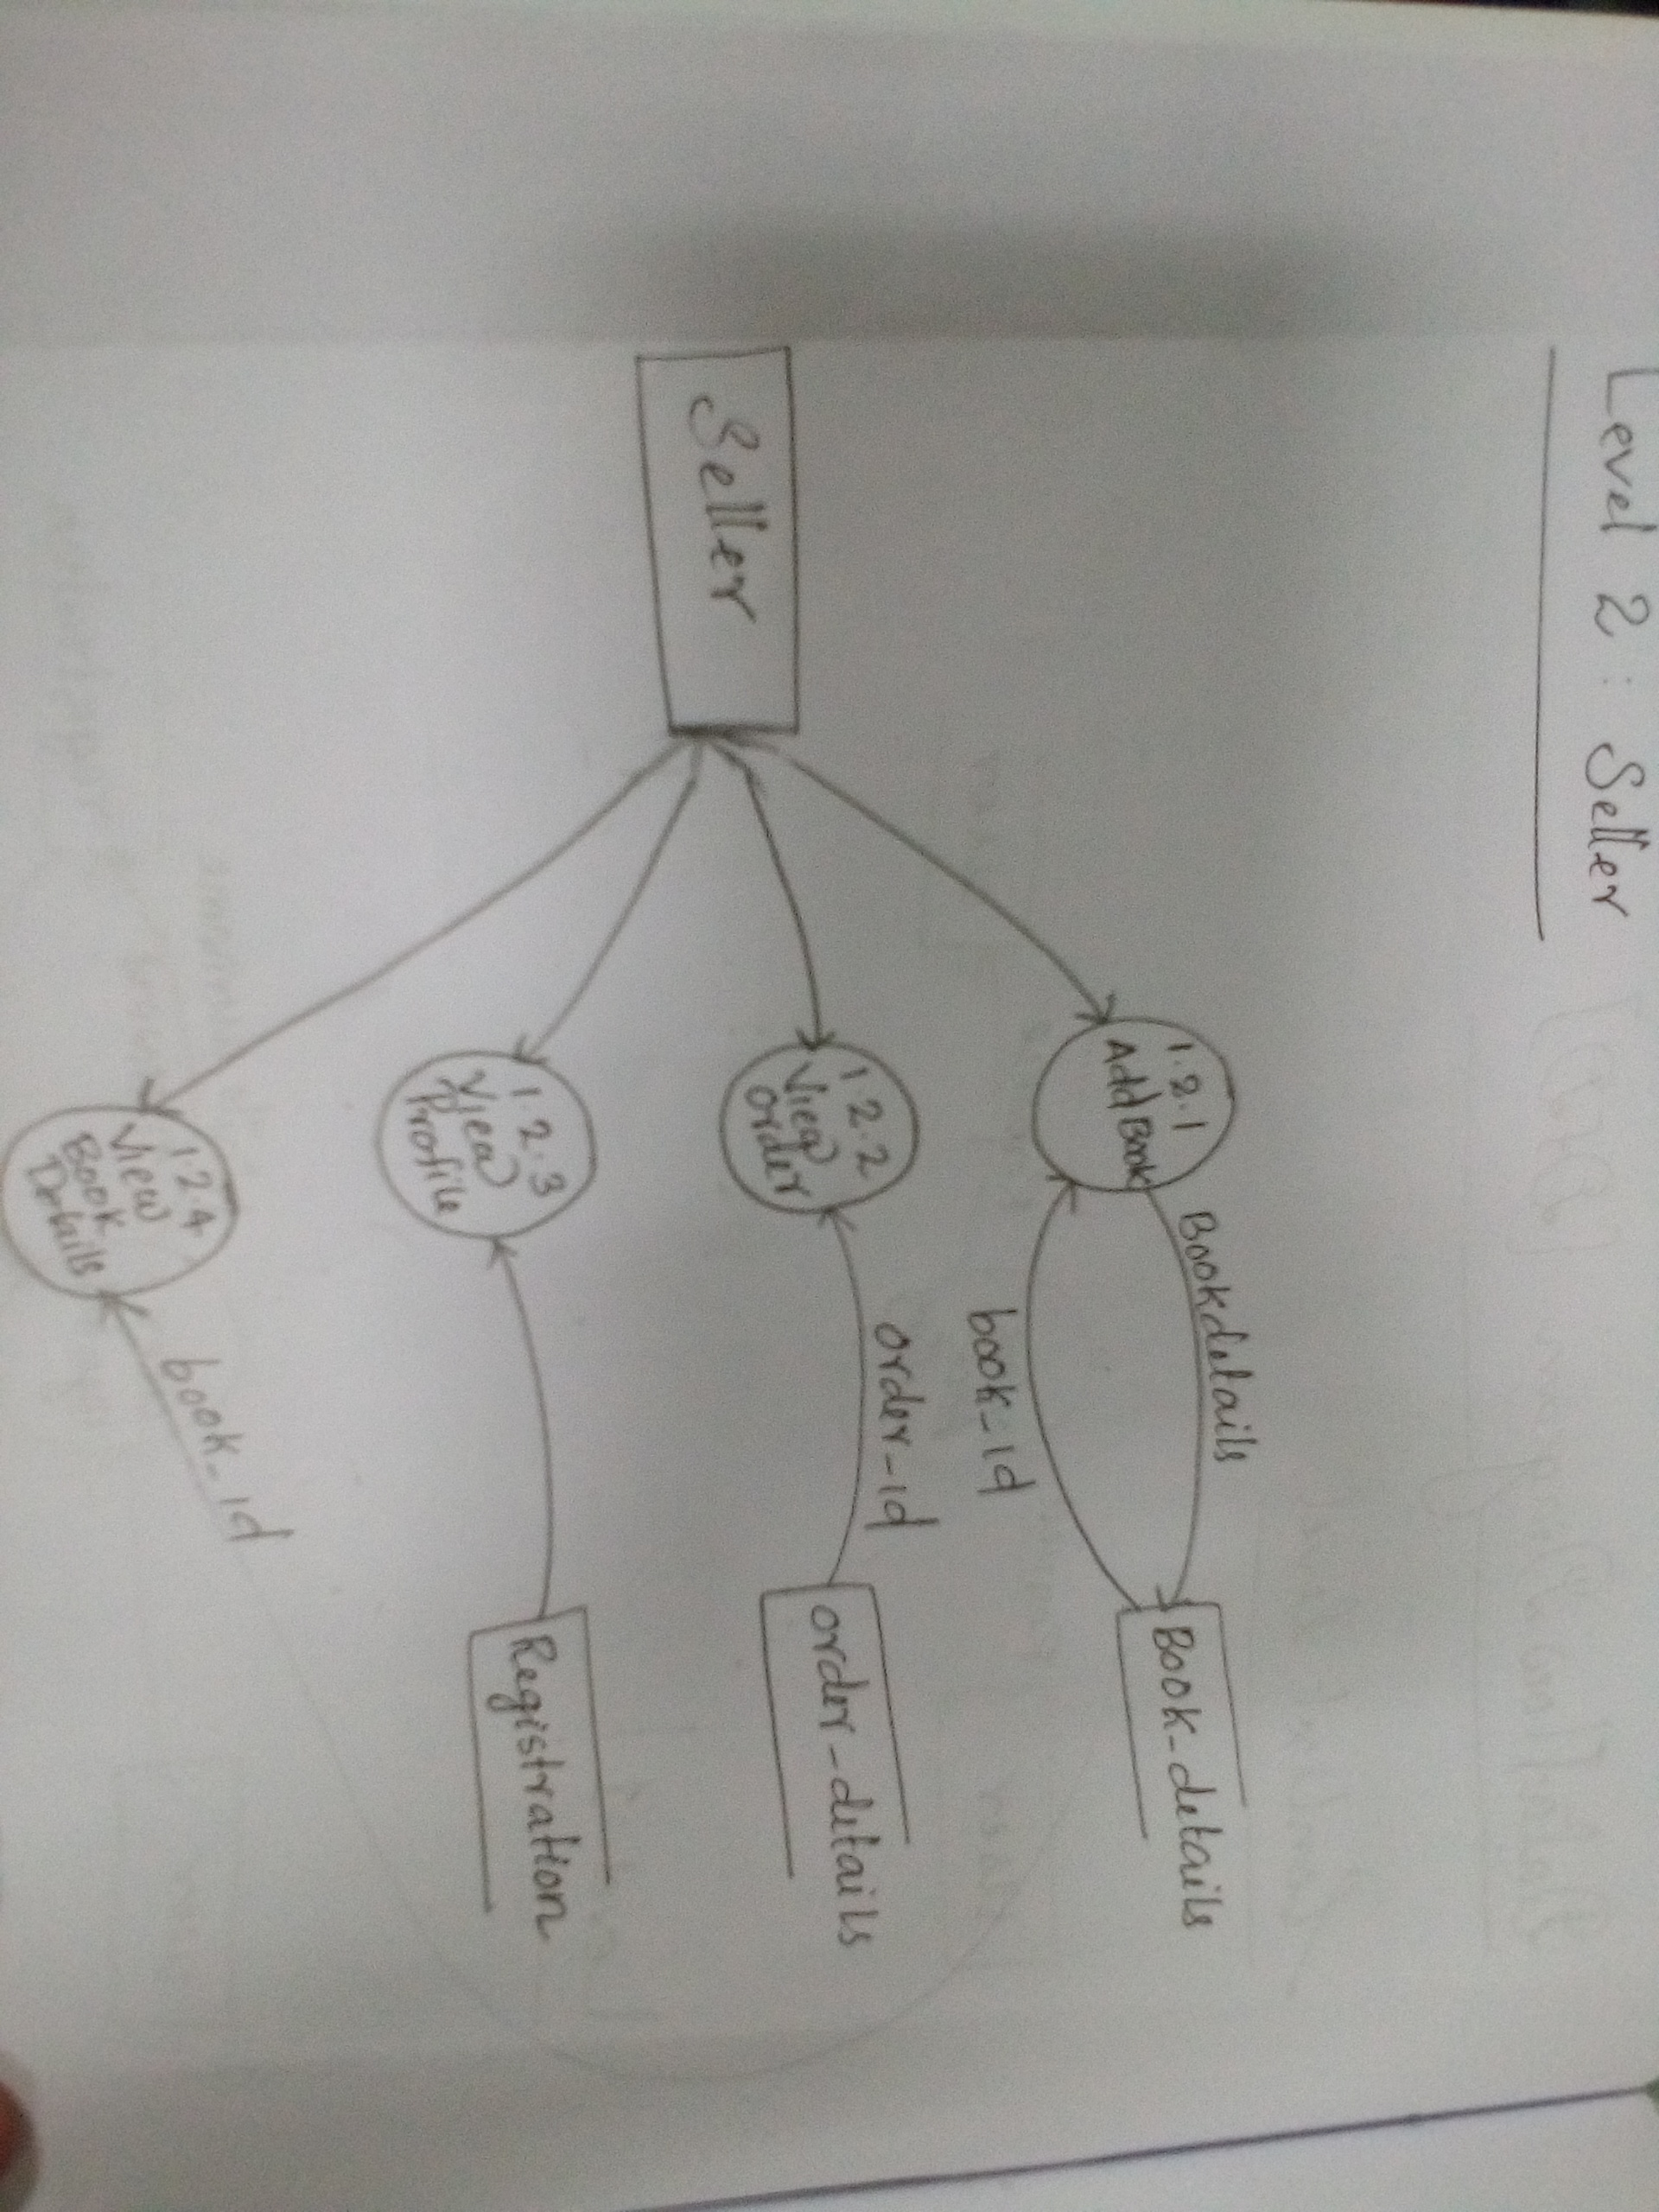 Level 2 : Seller
1.2.1
Add Book
Bookdetails
Book_details
book_id
1.2.2
View
order
order_id
order_details
Seller
1.2.3
View
Profile
Registration
1.2.4
View
Book
Details
book_id